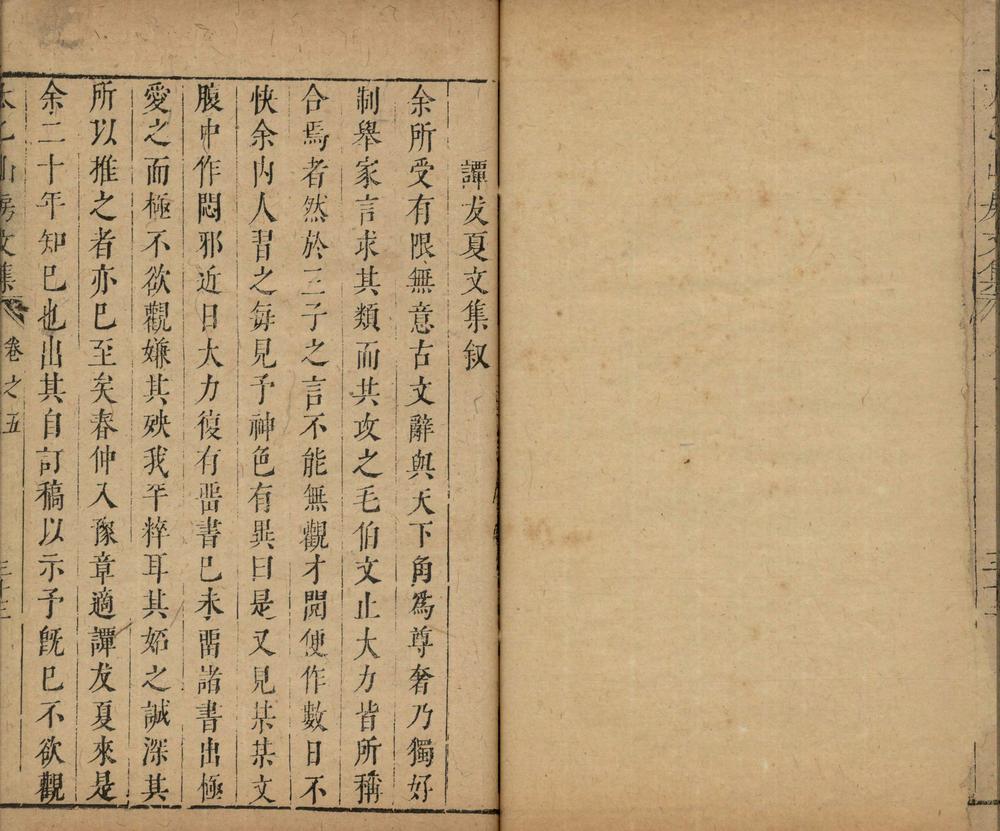 譚友夏文集叙
余所受有限無意古文辭與天下角為尊奢乃獨好
制舉家言求其類而共攻之毛伯文止大力皆所稱
合焉者然於三子之言不能無觀才閱便作數日不
快余内人習之每見予神色有異曰是又見某某文
腹中作悶邪近日大力復有留書已未留諸書出極
愛之而極不欲觀嫌其殃我平粹耳其妬之誠深其
所以推之者亦已至矣春仲入豫章適譚友夏來是
余二十年知已也出其自訂稿以示予旣已不欲觀
太乙山房文集 卷之五 三十三